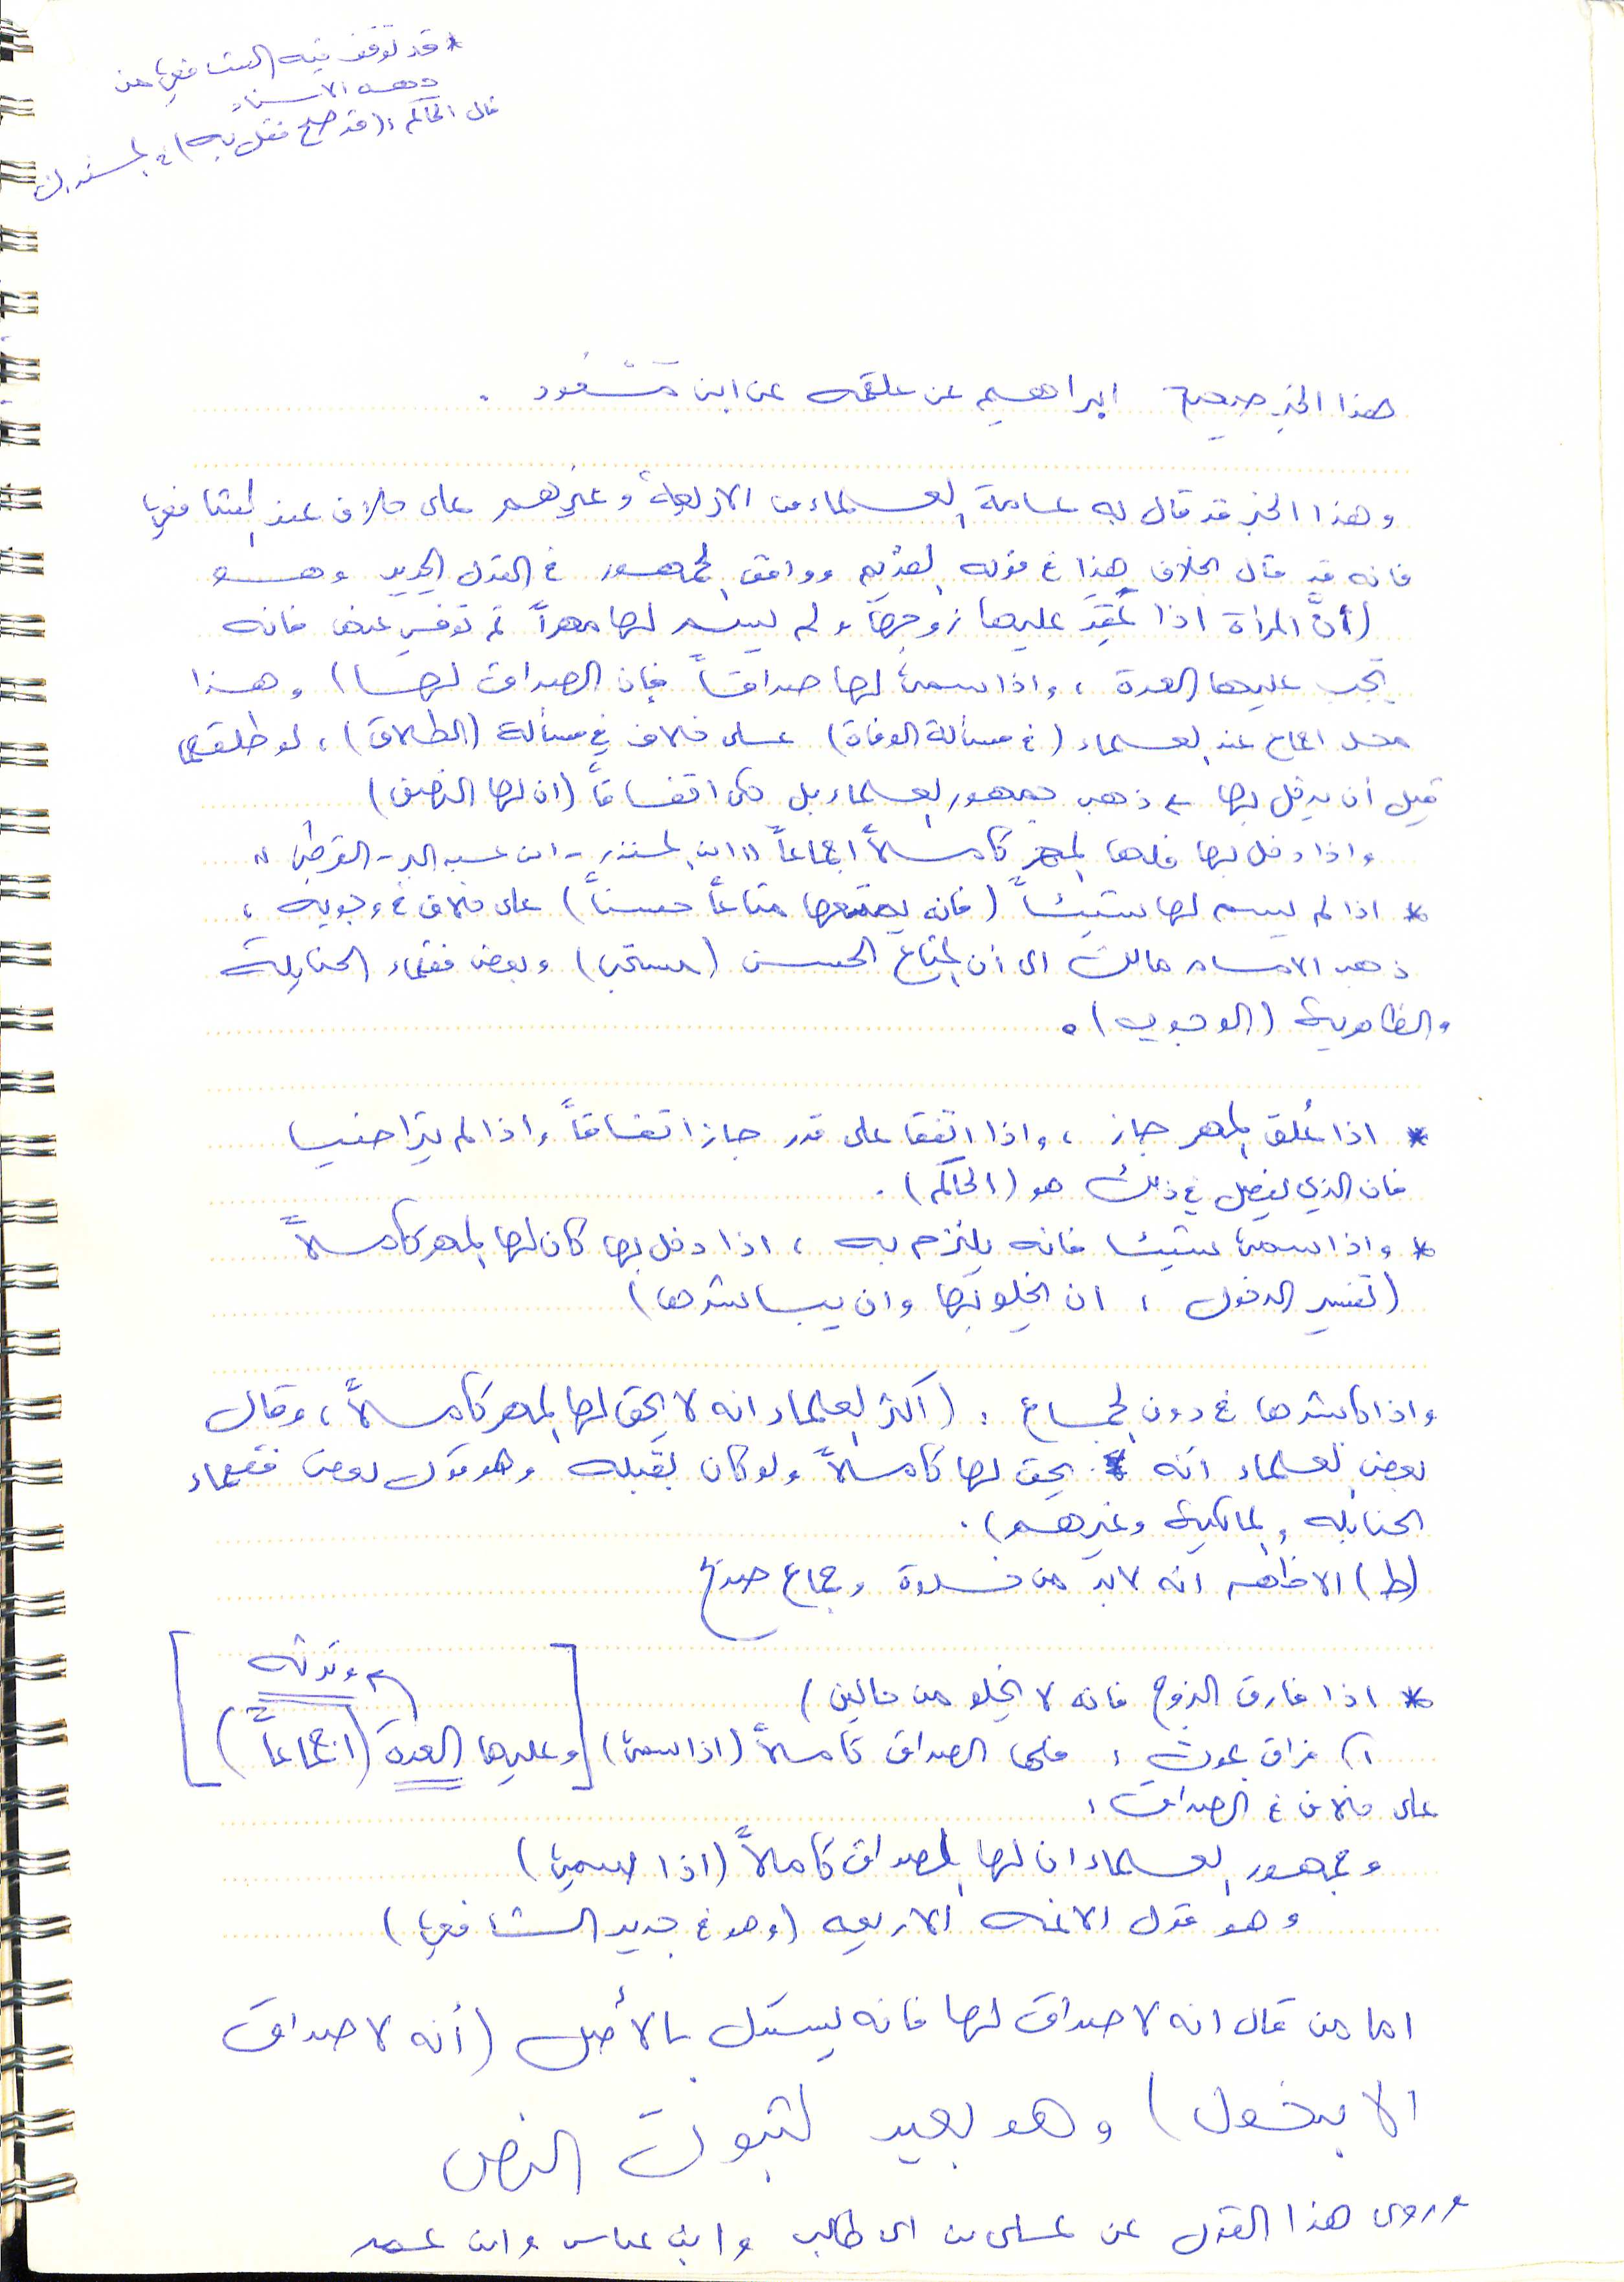 * قد توقف فيه الشافعي من
جهة الاسناد
قال الحاكم: (قد صح فقل به) في المستدرك
هذا الخبر صحيح ابراهيم عن علقمه عن ابن مَسْعُود .
وهذا الخبر قد قال به عامة العلماء من الاربعة وغيرهم على خلاف عند الشافعي
فانه قد قال بخلاف هذا في قوله القديم ووافق الجمهور في القول الجديد وهو
(أنَّ المرأة اذا عَقَد عليها زوجها ولم يسم لها مهراً ثم توفي عنها فانه
يجب عليها العدة ، واذا سمى لها صداقاً فإن الصداق لها) وهذا
محل اجماع عند العلماء (في مسألة الوفاة) على خلاف في مسألة (الطلاق) ، لو طلقها
قبل أن يدخل بها ذهب جمهور العلماء بل حكي اتفاقاً (ان لها النصف)
واذا دخل بها فلها المهر كاملاً اجماعاً "ابن المنذر - ابن عبد البر - القرطبي"
* اذا لم يسم لها شيئاً (فانه يمتعها متاعاً حسناً) على خلاف في وجوبه ،
ذهب الامام مالك الى أن المتاع الحسن (مستحب) وبعض فقهاء الحنابلة
والظاهرية (الوجوب) .
* اذا عُلق المهر جاز ، واذا اتفقا على قدر جاز اتفاقاً واذا لم يتراضيا
فان الذي يفصل في ذلك هو (الحاكم) .
* واذا سمى شيئا فانه يلزم به ، اذا دخل بها كان لها المهر كاملاً
(تفسير الدخول : ان يخلو بها وان يباشرها)
واذا باشرها في دون الجماع : (اكثر العلماء انه لا يحق لها المهر كاملاً ، وقال
بعض العلماء أنه يحق لها كاملاً ولو كان بقبله وهو قول بعض فقهاء
الحنابله والمالكية وغيرهم) .
(ط) الاظهر انه لابد من خلوة وجماع صح
* اذا فارق الزوج فانه لا يخلو من حالين)
١) فراق بموت : فلها الصداق كاملاً (اذا سمى) [وعليها العدة (اجماعاً) وترثه]
على خلاف في الصداق :
وجمهور العلماء ان لها الصداق كاملاً (اذا سمى)
وهو قول الائمه الاربعه (وهو في جديد الشافعي)
اما من قال انه لا صداق لها فانه يستدل بالأصل (أنه لا صداق
الا بدخول) وهو بعيد لثبوت النص
وروى هذا القول عن علي بن ابي طالب وابن عباس وابن عمر